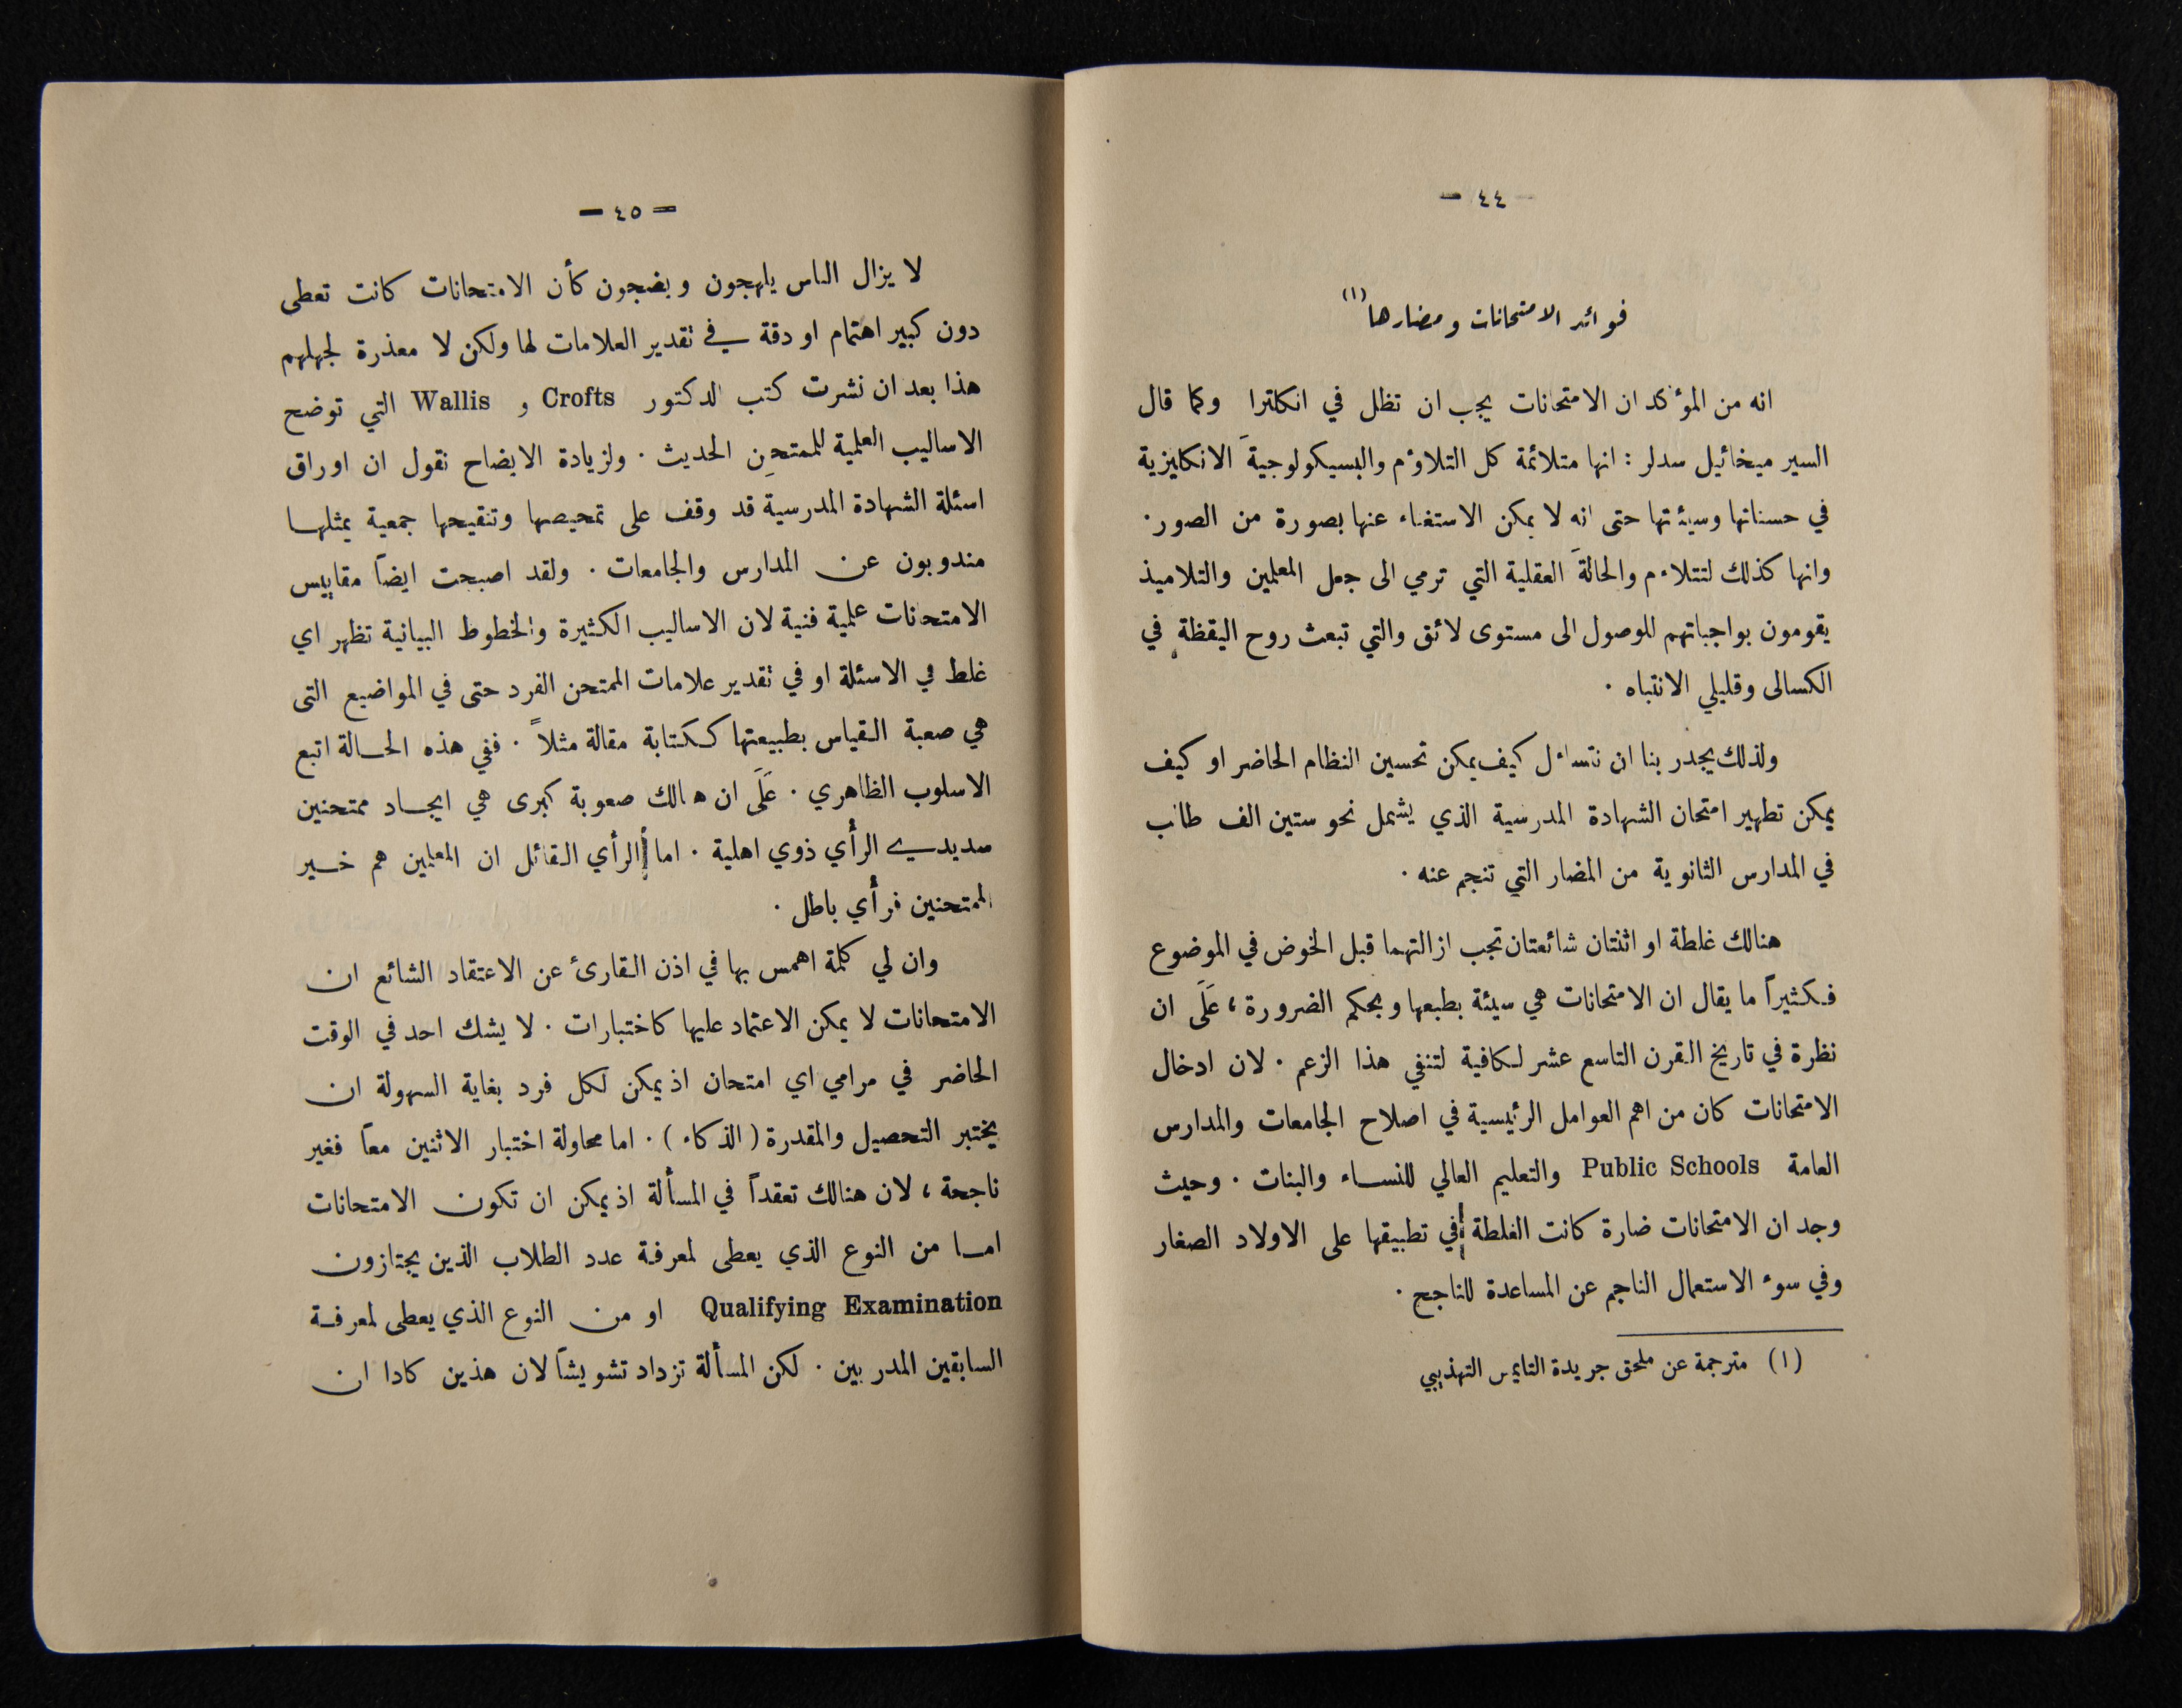 — ٤٤ —
فوائد الامتحانات ومضارها (١)
انه من المؤكد ان الامتحانات يجب ان تظل في انكلترا وكما قال
السير ميخائيل سدلر : انها متلائمة كل التلاؤم والبسيكولوجيةَ الانكليزية
في حسناتها وسيئتها حتى انه لا يمكن الاستغناء عنها بصورة من الصور .
وانها كذلك لتتلاءم والحالةَ العقلية التي ترمي الى جعل المعلمين والتلاميذ
يقومون بواجباتهم للوصول الى مستوى لائق والتي تبعث روح اليقظة في
الكسالى وقليلي الانتباه .
ولذلك يجدر بنا ان نتساءل كيف يمكن تحسين النظام الحاضر او كيف
يمكن تطهير امتحان الشهادة المدرسية الذي يشمل نحو ستين الف طالب
في المدارس الثانوية من المضار التي تنجم عنه .
هنالك غلطة او اثنتان شائعتان تجب ازالتهما قبل الخوض في الموضوع
فكثيراً ما يقال ان الامتحانات هي سيئة بطبعها وبحكم الضرورة ، عَلَى ان
نظرة في تاريخ القرن التاسع عشر لكافية لتنفي هذا الزعم . لان ادخال
الامتحانات كان من اهم العوامل الرئيسية في اصلاح الجامعات والمدارس
العامة Public Schools والتعليم العالي للنساء والبنات . وحيث
وجد ان الامتحانات ضارة كانت الغلطة في تطبيقها على الاولاد الصغار
وفي سوء الاستعمال الناجم عن المساعدة للناجح .
(١) مترجمة عن ملحق جريدة التايمس التهذيبي
— ٤٥ —
لا يزال الناس يلهجون ويضجون كأن الامتحانات كانت تعطى
دون كبير اهتمام او دقة في تقدير العلامات لها ولكن لا معذرة لجهلهم
هذا بعد ان نشرت كتب الدكتور Crofts و Wallis التي توضح
الاساليب العلمية للممتحِن الحديث . ولزيادة الايضاح نقول ان اوراق
اسئلة الشهادة المدرسية قد وقف على تمحيصها وتنقيحها جمعية يمثلها
مندوبون عن المدارس والجامعات . ولقد اصبحت ايضاً مقاييس
الامتحانات علمية فنية لان الاساليب الكثيرة والخطوط البيانية تظهر اي
غلط في الاسئلة او في تقدير علامات الممتحن الفرد حتى في المواضيع التى
هي صعبة القياس بطبيعتها ككتابة مقالة مثلاً . ففي هذه الحالة اتبع
الاسلوب الظاهري . عَلَى ان هنالك صعوبة كبرى هي ايجاد ممتحنين
سديدي الرأي ذوي اهلية . اما الرأي القائل ان المعلمين هم خير
الممتحنين فرأي باطل .
وان لي كلمة اهمس بها في اذن القارئ عن الاعتقاد الشائع ان
الامتحانات لا يمكن الاعتماد عليها كاختبارات . لا يشك احد في الوقت
الحاضر في مرامي اي امتحان اذ يمكن لكل فرد بغاية السهولة ان
يختبر التحصيل والمقدرة ( الذكاء ) . اما محاولة اختبار الاثنين معاً فغير
ناجحة ، لان هنالك تعقداً في المسألة اذ يمكن ان تكون الامتحانات
اما من النوع الذي يعطى لمعرفة عدد الطلاب الذين يجتازون
Qualifying Examination او من النوع الذي يعطى لمعرفة
السابقين المدربين . لكن المسألة تزداد تشويشاً لان هذين كادا ان